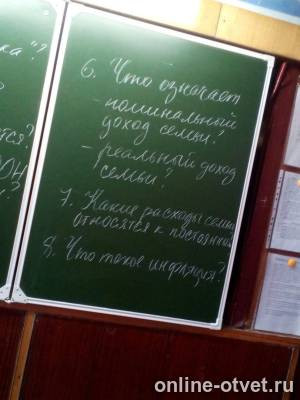 ка"?
тся?
6. Что означает
- номинальный
доход семьи?
- реальный доход
семьи?
7. Какие расходы семьи
относятся к постоянным
8. Что такое инфляция?
online-otvet.ru